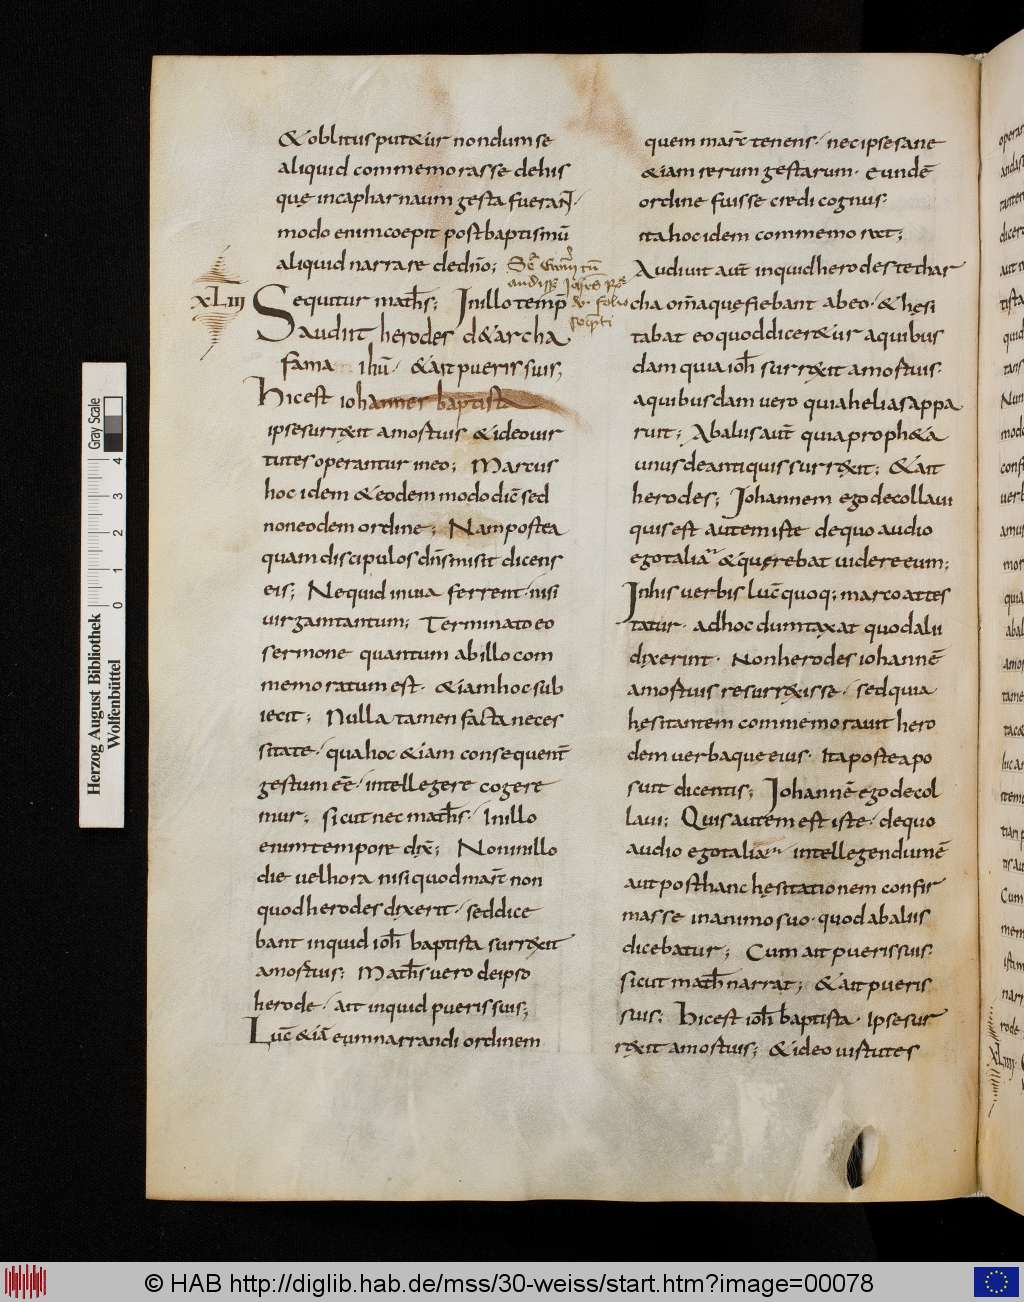 &oblitus put&ur nondum se
aliquid commemorasse de his
quę in capharnaum gesta fuerant·
modo enim coepit post baptismū
aliquid narrare de dn̄o;
xLIII
Sequitur math̄s; In illo temp̄
audiit herodes t&archa
fama ihū· &ait pueris suis;
hic est iohannes baptista
ipse surrexit a mortuis & ideo uir
tutes operantur in eo; Marcus
hoc idem & eodem modo dic̄ sed
non eodem ordine; Nam postea
quam discipulos dn̄s misit dicens
eis; Ne quid in uia ferrent· nisi
uirgam tantum; Terminato eo
sermone quantum ab illo com
memoratum est· & iam hoc sub
iecit; Nulla tamen facta neces
sitate· qua hoc &iam consequent̄
gestum eē· intellegere cogere
mur; sicut nec math̄s· In illo
enim tempore dix̄; Non in illo
die uel hora nisi quod marc̄ non
quod herodes dixerit· sed dice
bant inquid ioh̄ baptista surrexit
a mortuis; Math̄s uero de ipso
herode· ait inquid pueris suis;
Luc̄ &iā eum narrandi ordinem
quem marc̄ tenens· nec ipse sane
&iam rerum gestarum· eundē
ordine fuisse credi cognus·
ita hoc idem commemorat;
Audiuit aut̄ inquid herodes tethar
cha om̄a quę fiebant ab eo· & hęsi
tabat eo quod dicer&ur a quibus
dam quia ioh̄ surrexit a mortuis·
a quibusdam uero quia helias appa
ruit; Ab aliis aut̄ quia proph&a
unus de antiquis surrexit; & ait
herodes; Iohannem ego decollaui
quis est autem iste de quo audio
ego talia & quęrebat uidere eum;
In his uerbis luc̄ quoq; marco attes
tatur· ad hoc dumtaxat quod alii
dixerint· Non herodes iohannē
a mortuis resurrexisse· sed quia
hęsitantem commemorauit hero
dem uerbaque eius· Ita postea po
suit dicentis; Iohannē ego decol
laui; Quis autem est iste· de quo
audio ego talia· intellegendum ē
aut post hanc hęsitationem confir
masse in animo suo· quod ab aliis
dicebatur; Cum ait pueris suis·
sicut math̄ narrat; & ait pueris
suis; hic est ioh̄ baptista· Ipse sur
rexit a mortuis; & ideo uirtutes
Herzog August Bibliothek
Wolfenbüttel
Gray Scale
0 1 2 3 4
© HAB http://diglib.hab.de/mss/30-weiss/start.htm?image=00078